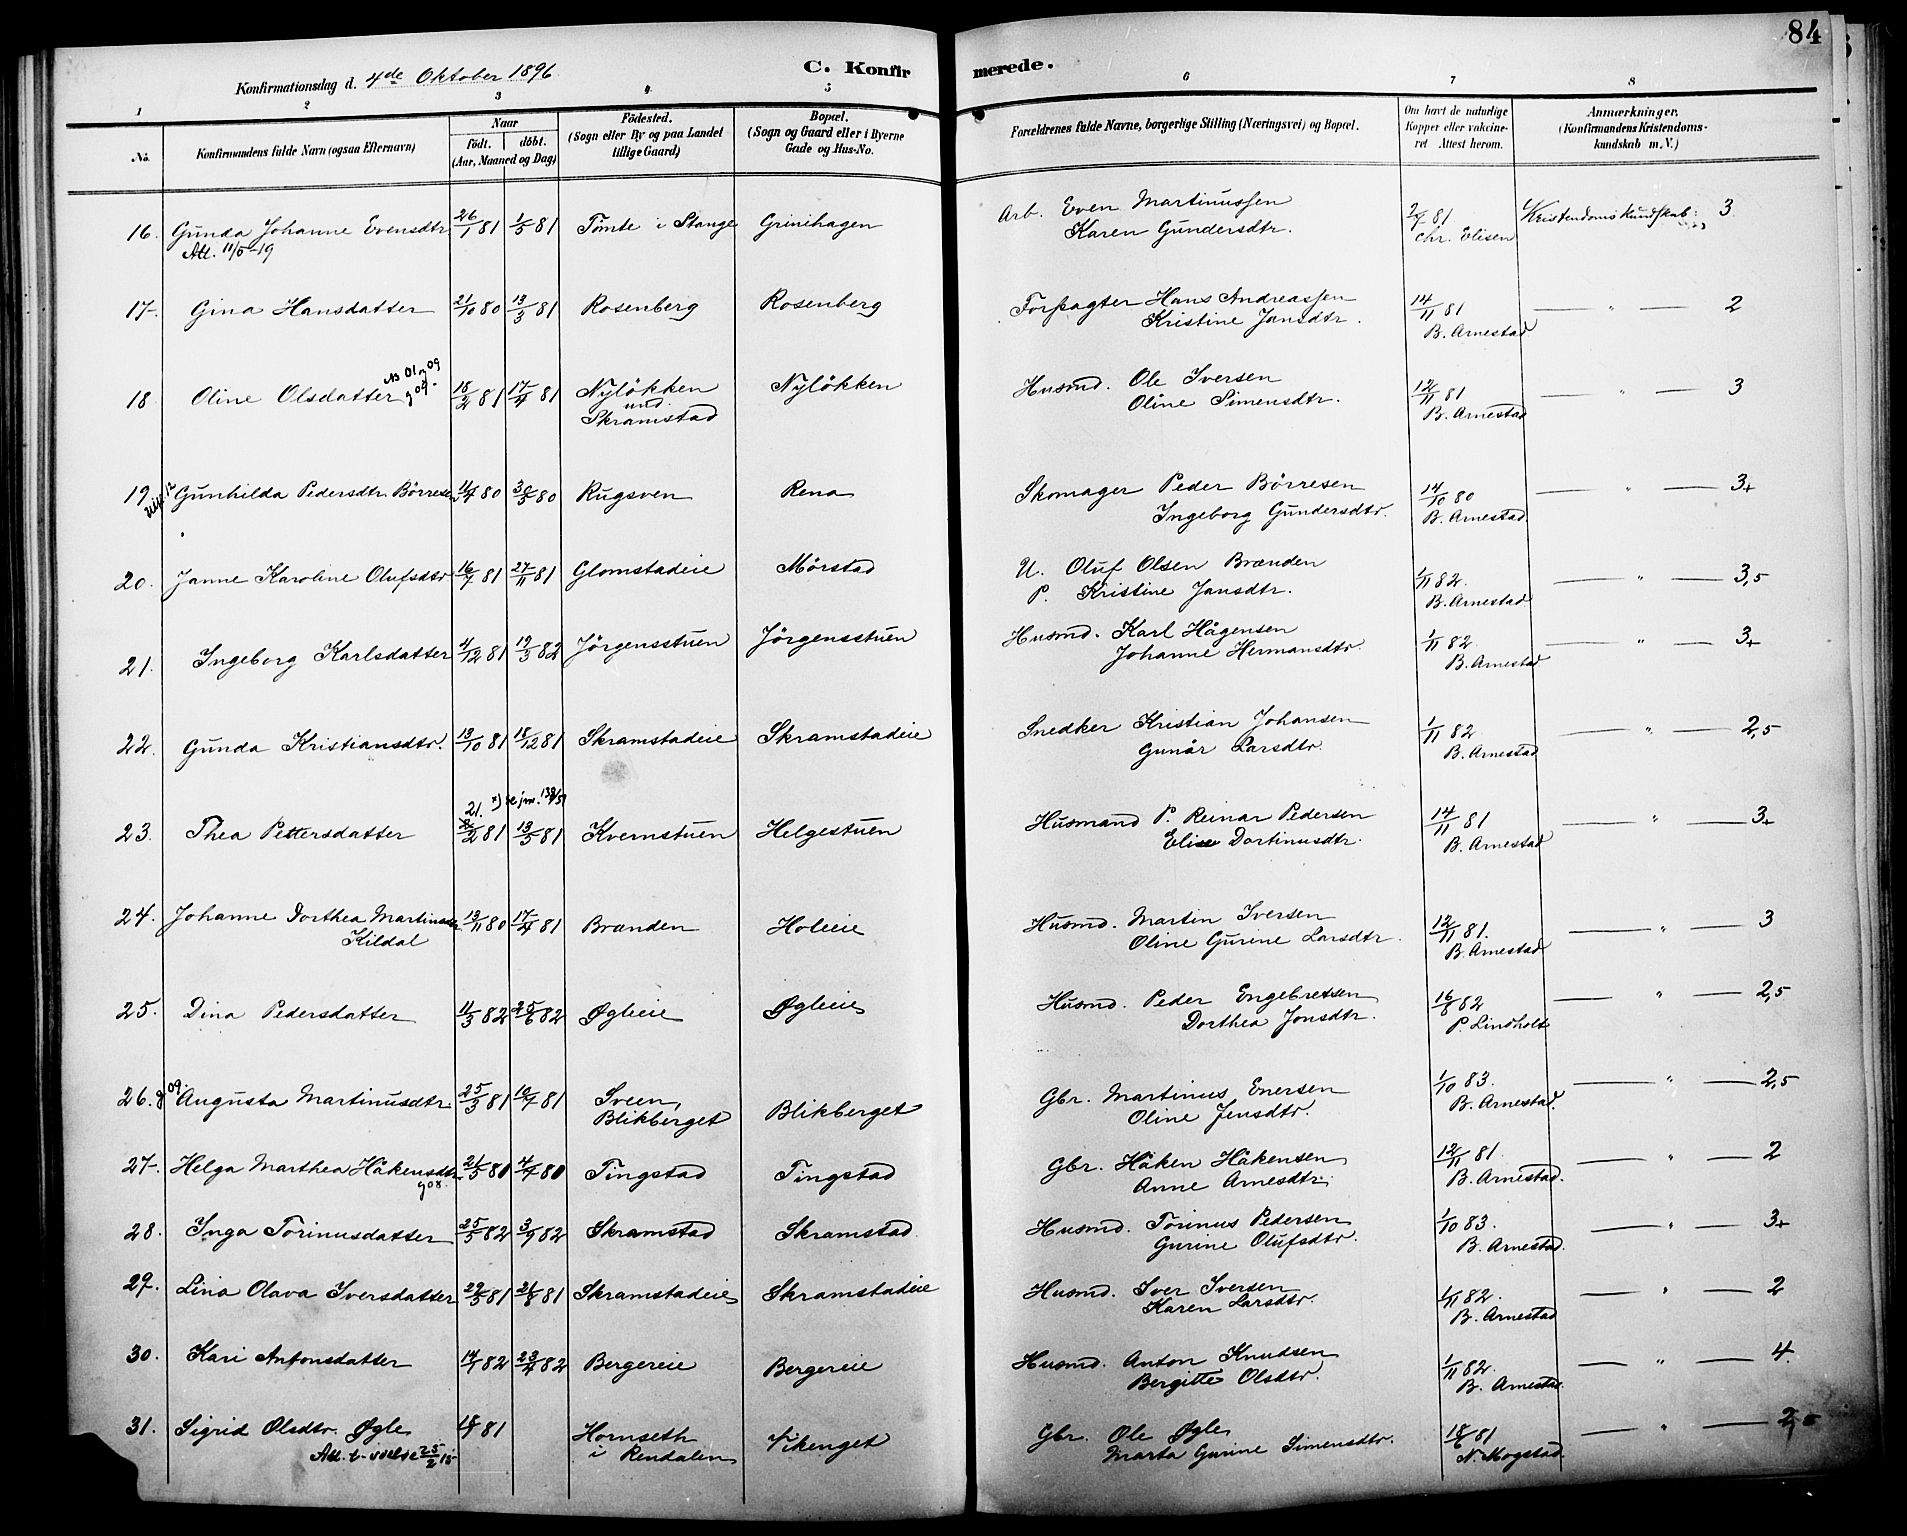 84
Konfirmationsdag d. 4de Oktober 1896
C. Konfirmerede.
1 2 3 4 5 6 7 8
No. Konfirmandens fulde Navn (ogsaa Efternavn) Naar födt. döbt. (Aar, Maaned og Dag) Födested. (Sogn eller By og paa Landet tillige Gaard) Bopæl. (Sogn og Gaard eller i Byerne Gade og Hus-No. Forældrenes fulde Navne, borgerlige Stilling (Næringsvei) og Bopæl. Om havt de naturlige Kopper eller vakcineret Attest herom. Anmærkninger. (Konfirmandens Kristendomskundskab m. V.)
16. Gunda Johanne Evensdtr 26/1 81 1/5 81 Tomte i Stange Grinihagen Arb. Even Martinussen 81 Kristendomskundskab: 3
Att. 11/5-19 Karen Gundersdtr. Chr. Elisen
17. Gina Hansdatter 21/10 80 13/3 81 Rosenberg Rosenberg Forpagter Hans Andreassen 14/11 81 — " — 2
Kristine Jansdtr. B. Arnestad
18. Oline Olsdatter 18/2 81 17/4 81 Nylökken Nylökken Husmd. Ole Iversen 12/11 81 — " — 3
und. Skramstad Oline Simensdtr. B. Arnestad
19. Gunhilda Pedersdtr. Börresen 11/4 80 30/5 80 Rugsven Rena Skomager Peder Börresen 14/10 80 — " — 3+
Ingeborg Gundersdtr. B. Arnestad.
20. Janne Karoline Olufsdtr 16/7 81 27/11 81 Glomstadeie Mörstad U. Oluf Olsen Brænden 1/11 82. — " — 3,5
P. Kristine Jansdtr. B. Arnestad
21. Ingeborg Karlsdatter 4/12 81 19/3 82 Jörgensstuen Jörgensstuen Husmd. Karl Hågensen 1/11 82. — " — 3+
Johanne Hermansdtr. B. Arnestad
22. Gunda Kristiansdtr. 13/10 81 18/12 81 Skramstadeie Skramstadeie Snedker Kristian Johansen 1/11 82 — " — 2,5
Gunår Larsdtr. B. Arnestad
21. x) se jnr. 138/51
23. Thea Pettersdatter 2 81 13/5 81 Kvernstuen Helgestuen Husmand P. Reinar Pedersen 14/11 81 — " — 3+
Elise Dortinusdtr. B. Arnestad
24. Johanne Dorthea Martinsdtr. 13/11 80 17/4 81 Brænden Holeie Husmd. Martin Iversen 12/11 81. — " — 3
Kildal Oline Gurine Larsdtr. B. Arnestad
25. Dina Pedersdatter 11/3 82 25/6 82 Øgleie Øgleie Husmd. Peder Engebretsen 16/8 82 — " — 2,5
Dorthea Jonsdtr. P. Lindholt
26. Augusta Martinusdtr. 25/3 81 10/7 81 Sveen, Blikberget Gbr. Martinus Enersen 1/10 83. — " — 2,5
Blikberget Oline Jensdtr. B. Arnestad.
27. Helga Marthea Håkensdtr. 21/5 80 4/7 80 Tingstad Tingstad Gbr. Håken Håkensen 12/11 81. — " — 2
g 08. Anne Arnesdtr. B. Arnestad.
28. Inga Torinusdatter 25/5 82 3/9 82 Skramstad Skramstad. Husmd. Torinus Pedersen 1/10 83. — " — 3+
Gurine Olufsdtr. B. Arnestad.
29. Lina Olava Iversdatter 29/5 81 21/8 81 Skramstadeie Skramstadeie Husmd. Iver Iversen 1/11 82. — " — 2
Karen Larsdtr. B. Arnestad
30. Kari Antonsdatter 14/1 82 23/4 82 Bergereie Bergereie Husmd. Anton Knudsen 1/11 82. — " — 4.
Bergitte Olsdtr. B. Arnestad
31. Sigrid Olsdtr. Øgle 81 Hornseth Vikenget Gbr. Ole Øgle 18/6 81 — " —
Att. t. vielse 25/2 15 i Rendalen Marta Gurine Simensdtr. N. Mogstad.